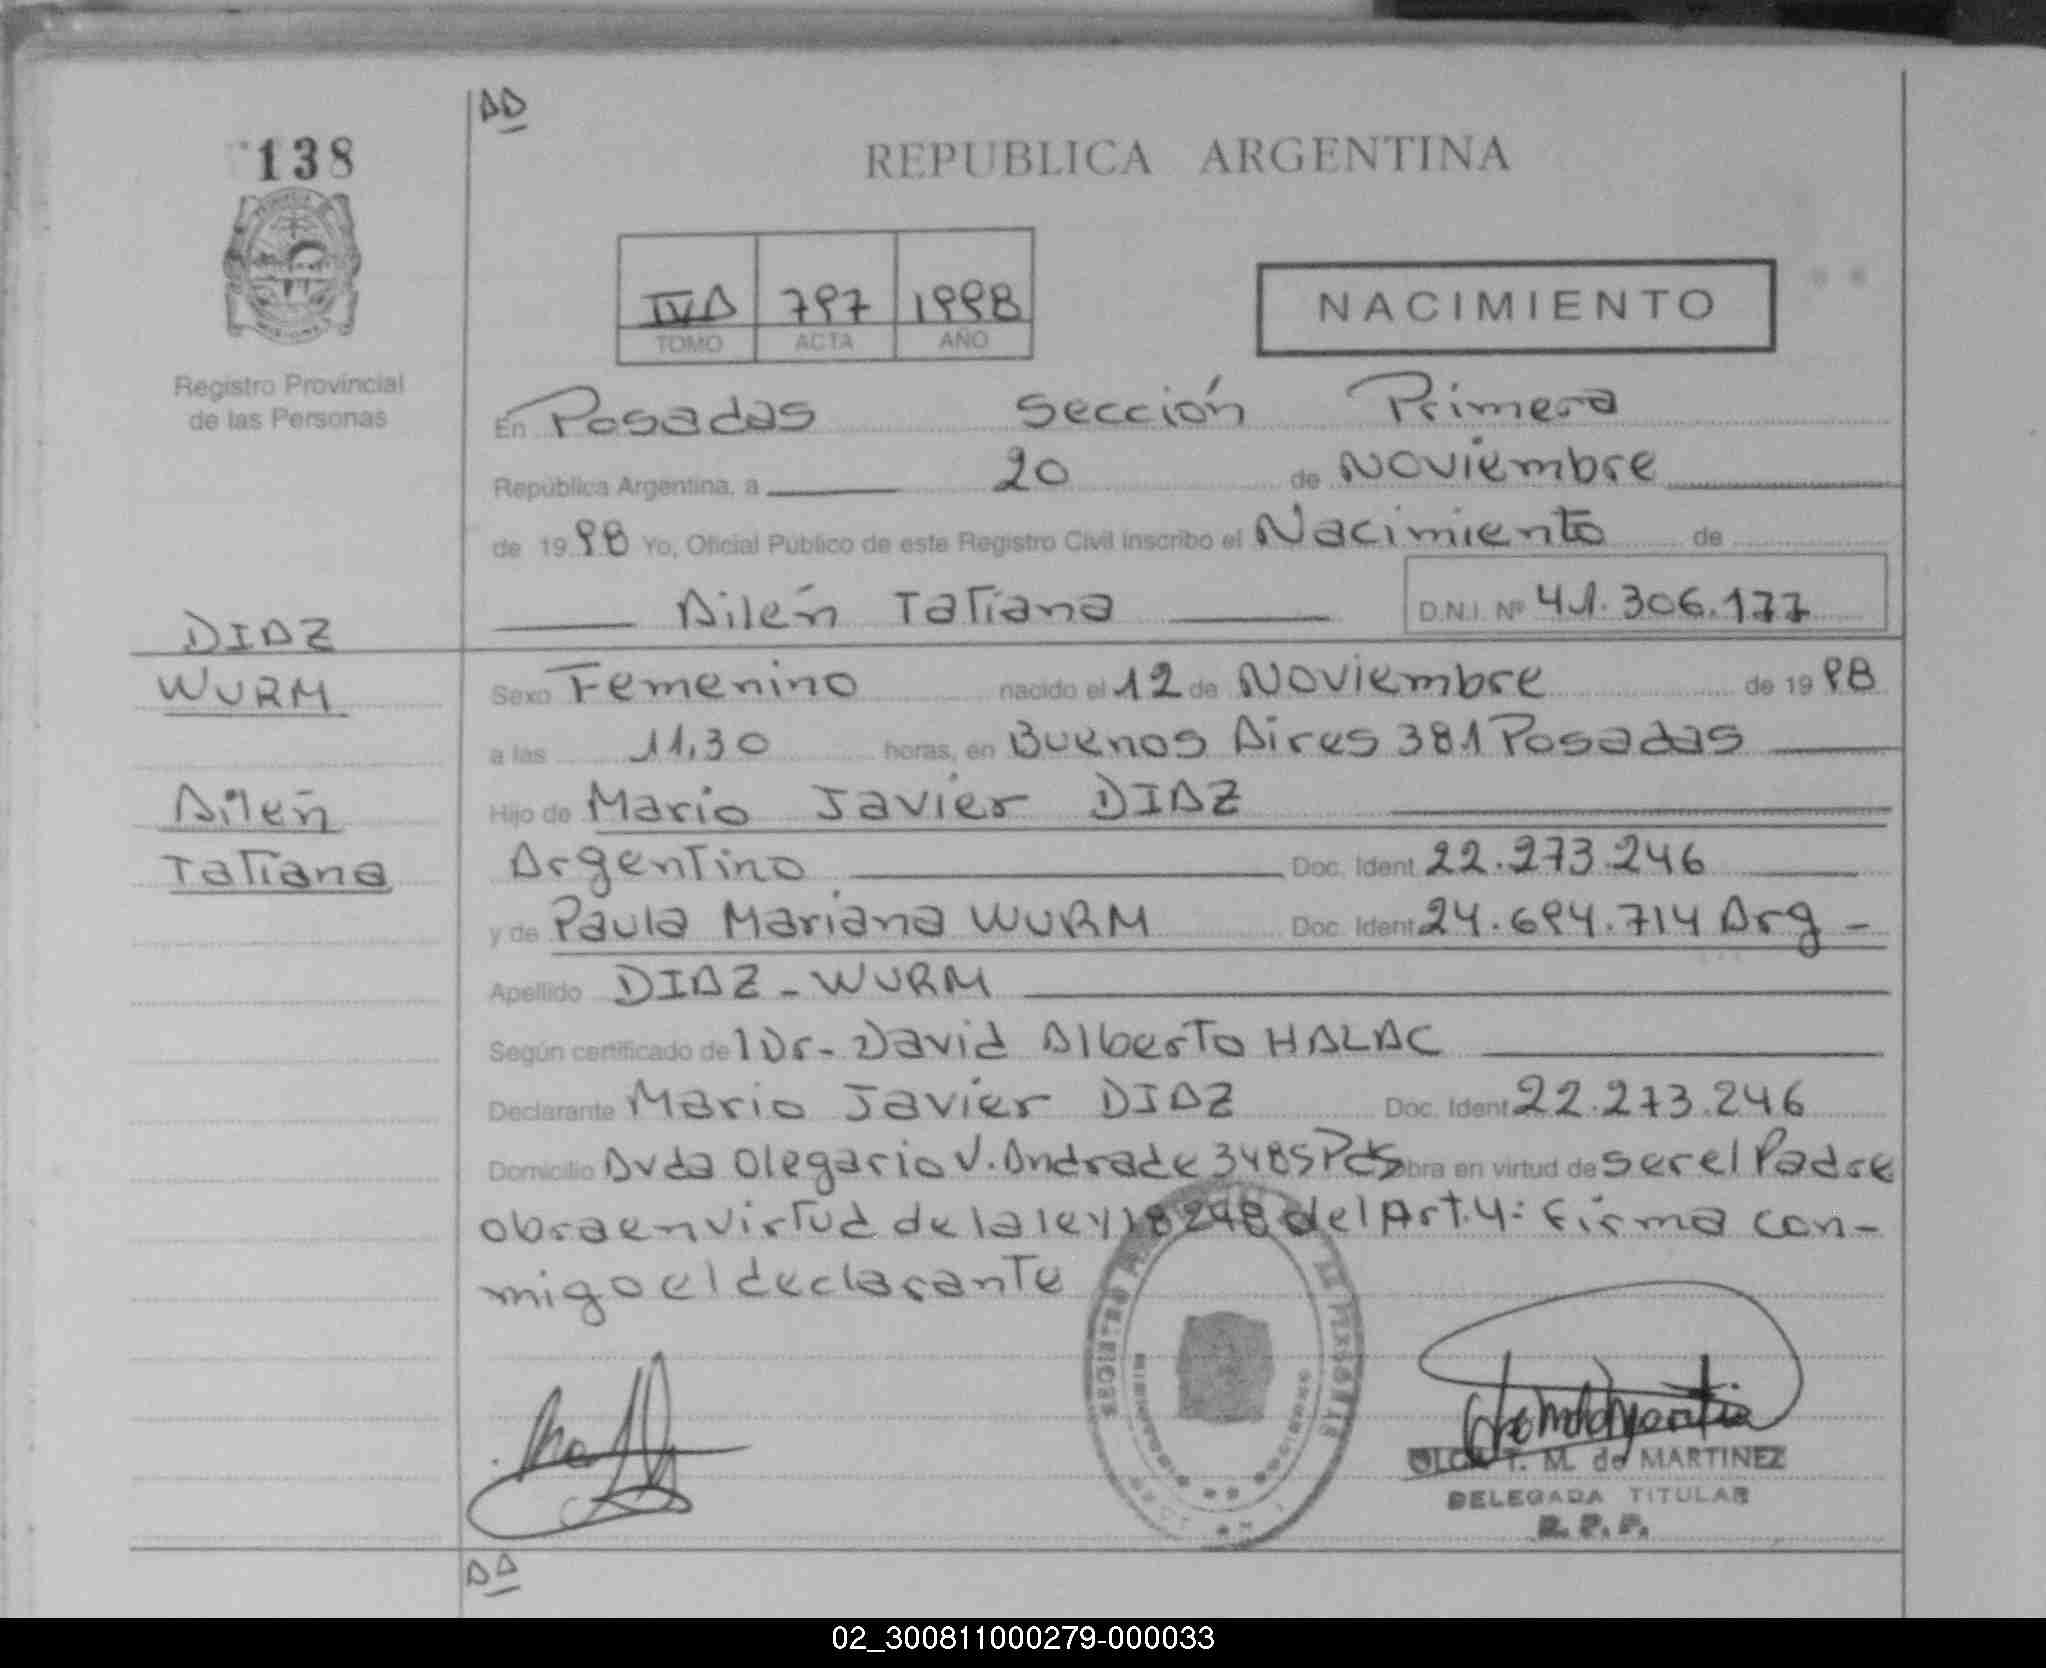 138
REPUBLICA ARGENTINA
IVA 797 1998
TOMO ACTA AÑO
NACIMIENTO
Registro Provincial
de las Personas
En Posadas Sección Primera
República Argentina, a 20 de Noviembre
de 1998 Yo, Oficial Público de este Registro Civil inscribo el Nacimiento de
Ailén Tatiana D.N.I. Nº 41.306.177
DIAZ
WURM
Ailén
Tatiana
Sexo Femenino nacido el 12 de Noviembre de 1998
a las 11,30 horas, en Buenos Aires 381 Posadas
Hijo de Mario Javier DIAZ
Argentino Doc. Ident. 22.273.246
y de Paula Mariana WURM Doc. Ident. 24.694.714 Arg -
Apellido DIAZ - WURM
Según certificado del Dr. David Alberto HALAC
Declarante Mario Javier DIAZ Doc. Ident. 22.273.246
Domicilio Avda Olegario V. Andrade 3485 Pds obra en virtud de ser el Padre
obra en virtud de la ley 18248 del Art. 4: Firma con-
migo el declarante
T. M. de MARTINEZ
DELEGADA TITULAR
R. P. P.
02_300811000279-000033